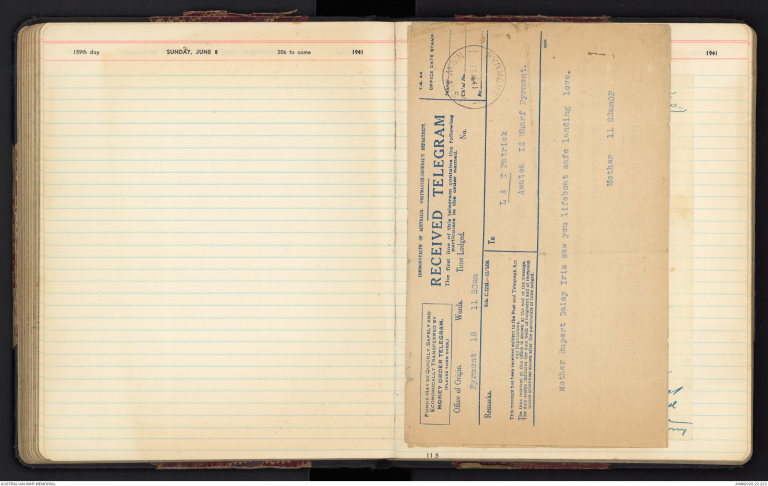 159th day SUNDAY, JUNE 8 206 to come 1941
1941
COMMONWEALTH OF AUSTRALIA. POSTMASTER-GENERAL'S DEPARTMENT.
RECEIVED TELEGRAM
The first line of this telegram contains the following
particulars in the order named.
FUNDS MAY BE QUICKLY, SAFELY AND
ECONOMICALLY TRANSFERRED BY
MONEY ORDER TELEGRAM.
(PLEASE TURN OVER.)
T.G. 42.
OFFICE DATE STAMP.
PYRMONT
Office of Origin. Words. Time Lodged. No.
Pyrmont 18 11 23am
Remarks.
To L A C Patrick
Awatea 12 Wharf Pyrmont.
This message has been received subject to the Post and Telegraph Act
and Regulations.
The time received at this office is shown at the end of the message.
Mother Rupert Daisy Iris saw you lifeboat safe landing love.
Mother 11 23amOP
115
AUSTRALIAN WAR MEMORIAL
AWM2020.22.223